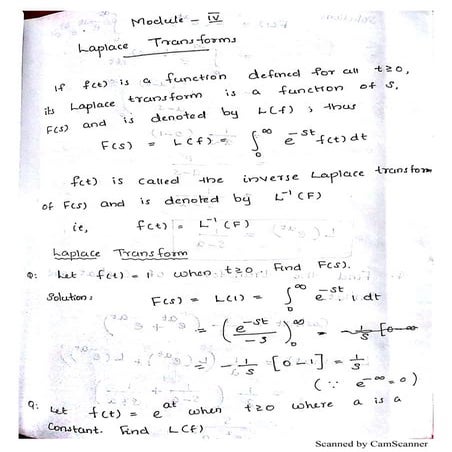 Module - IV
Laplace Transforms
If f(t) is a function defined for all t≥0,
its Laplace transform is a function of s,
F(s) and is denoted by L(f) ; thus
F(s) = L(f) = ∫₀^∞ e^-st f(t) dt
f(t) is called the inverse Laplace transform
of F(s) and is denoted by L^-1 (F)
ie, f(t) = L^-1 (F)
Laplace Transform
Q: Let f(t) = 1 when t≥0. Find F(s).
Solution: F(s) = L(1) = ∫₀^∞ e^-st . 1 dt
= (e^-st / -s)₀^∞ =
= -1/s [0-1] = 1/s
(∵ e^-∞ = 0)
Q: Let f(t) = e^at when t≥0 where a is a
Constant. Find L(f)
Scanned by CamScanner